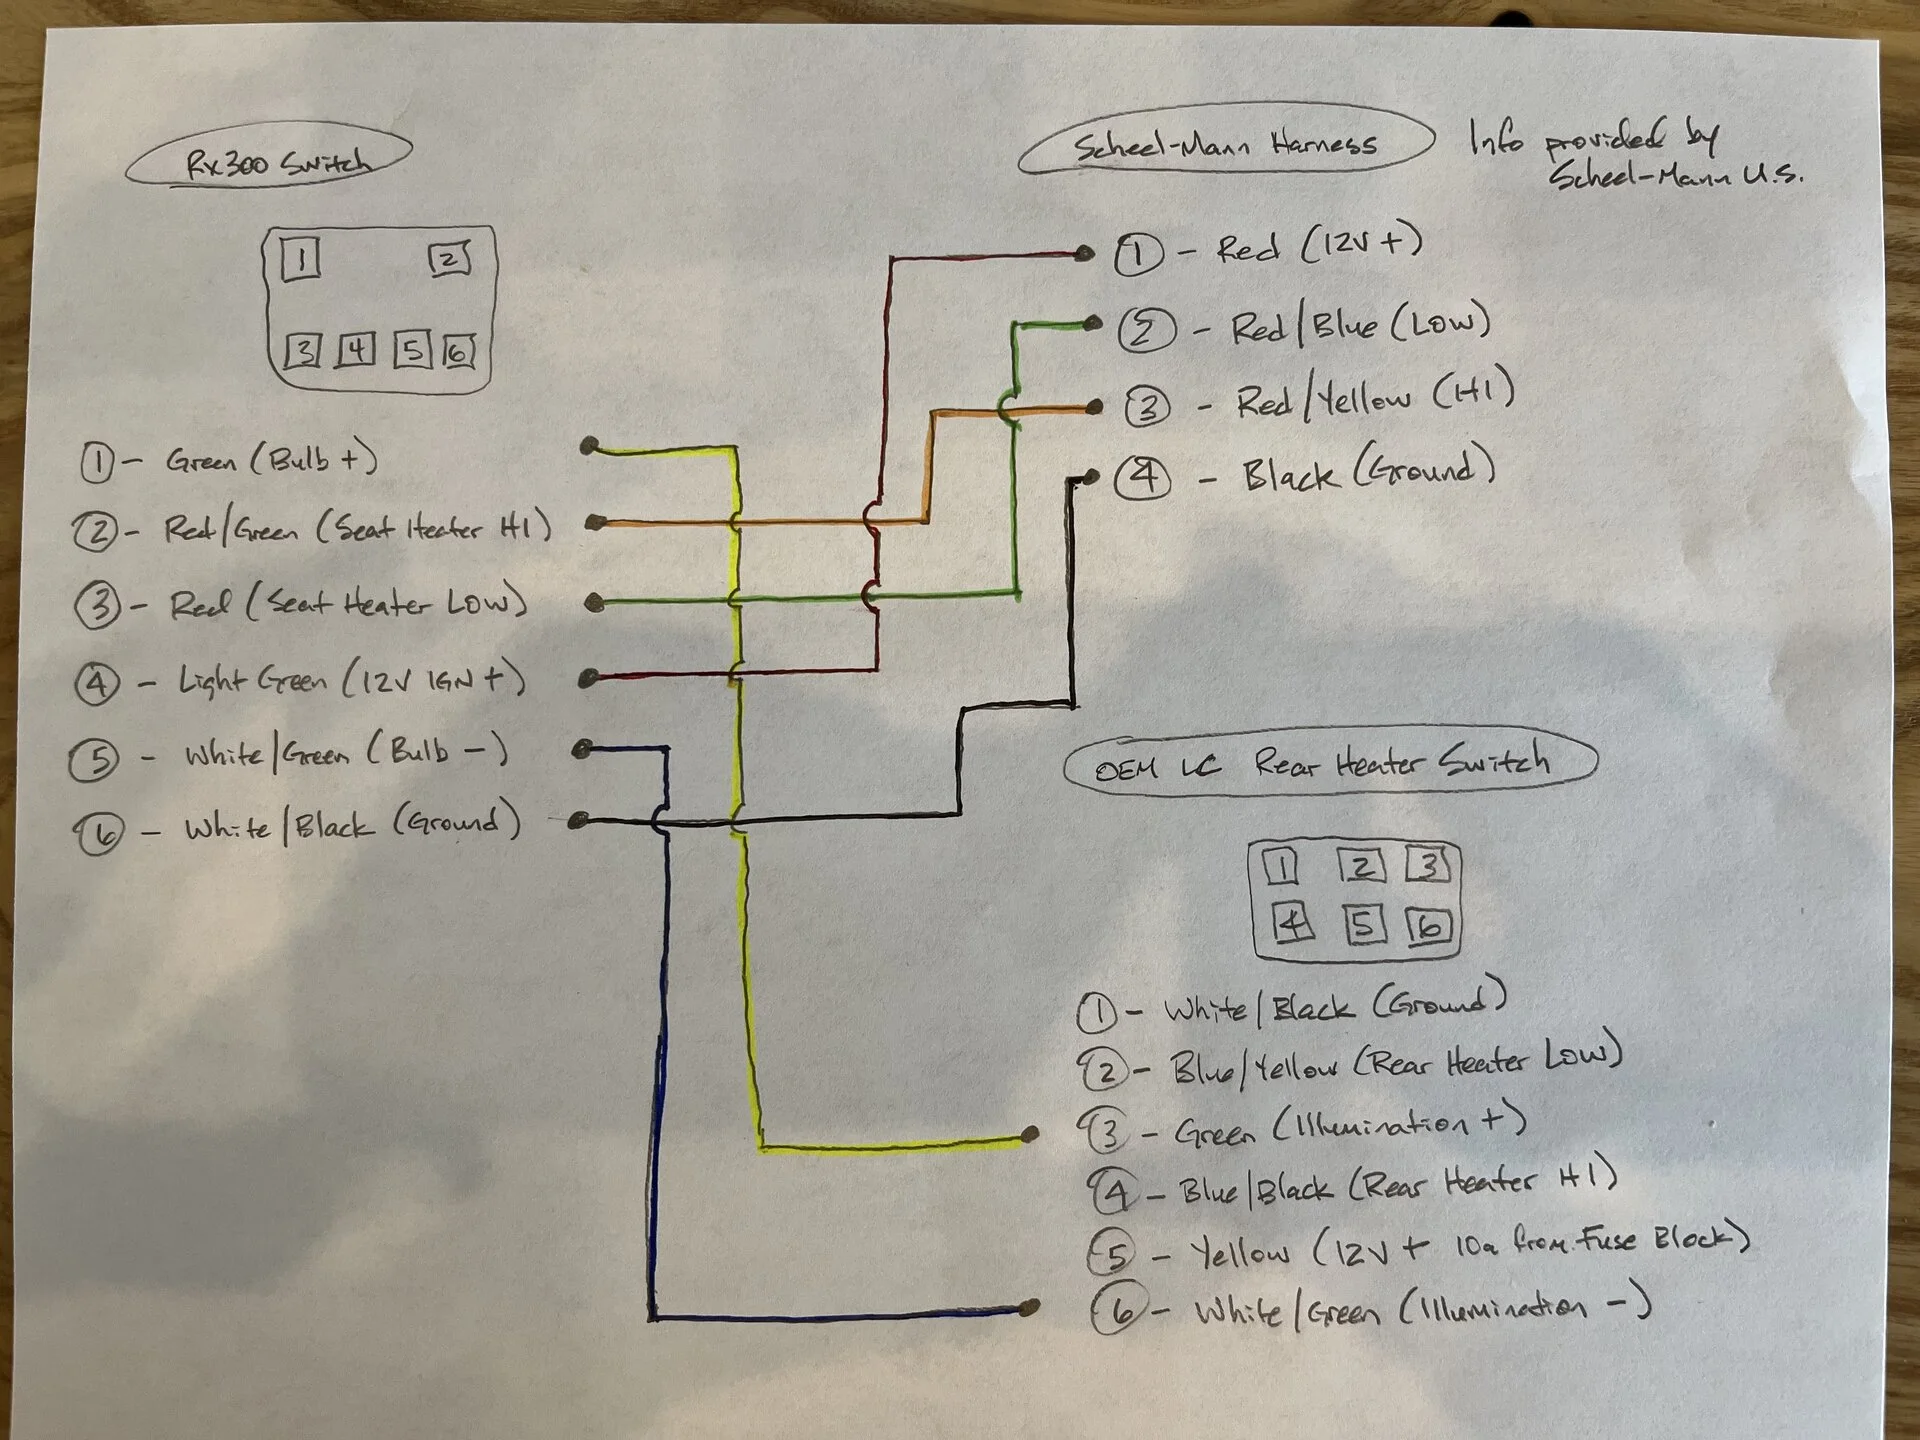 Rx300 Switch
1 2
3 4 5 6
1 - Green (Bulb +)
2 - Red/Green (Seat Heater HI)
3 - Red (Seat Heater Low)
4 - Light Green (12V IGN +)
5 - White/Green (Bulb -)
6 - White/Black (Ground)
Scheel-Mann Harness
Info provided by
Scheel-Mann U.S.
1 - Red (12V +)
2 - Red/Blue (Low)
3 - Red/Yellow (HI)
4 - Black (Ground)
OEM LC Rear Heater Switch
1 2 3
4 5 6
1 - White/Black (Ground)
2 - Blue/Yellow (Rear Heater Low)
3 - Green (Illumination +)
4 - Blue/Black (Rear Heater HI)
5 - Yellow (12V + 10a from Fuse Block)
6 - White/Green (Illumination -)